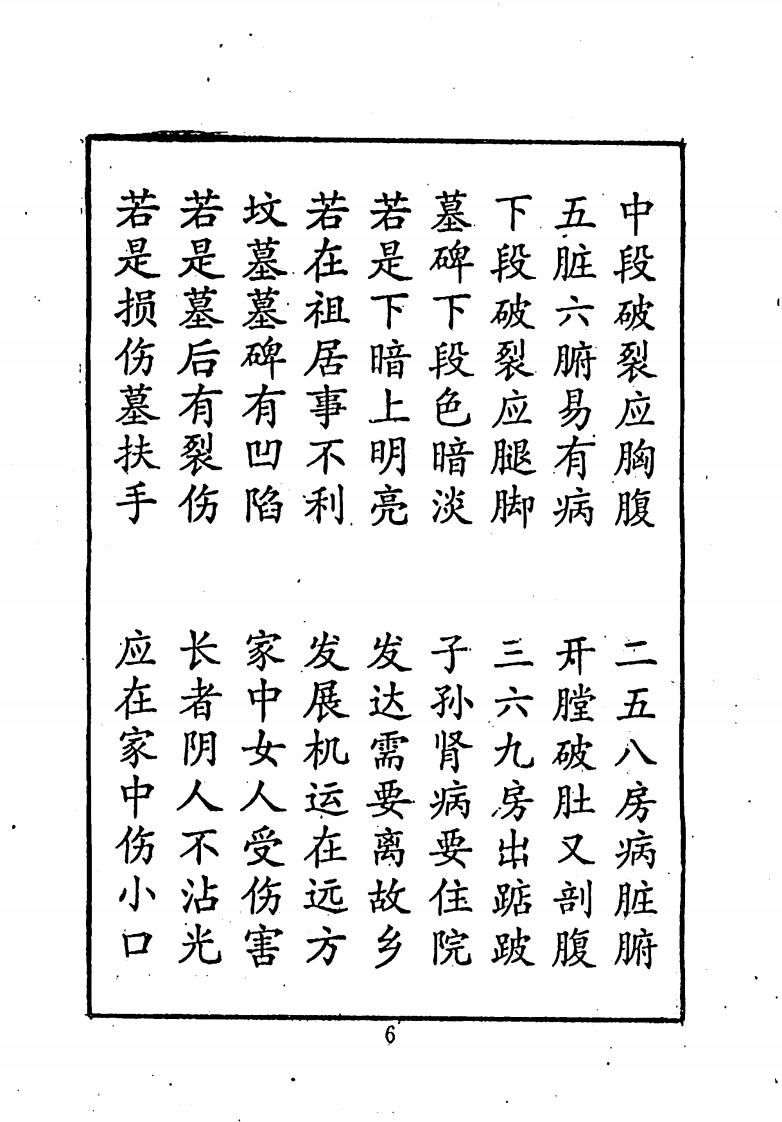 中段破裂应胸腹　二五八房病脏腑
五脏六腑易有病　开膛破肚又剖腹
下段破裂应腿脚　三六九房出踮跛
墓碑下段色暗淡　子孙肾病要住院
若是下暗上明亮　发达需要离故乡
若在祖居事不利　发展机运在远方
坟墓墓碑有凹陷　家中女人受伤害
若是墓后有裂伤　长者阴人不沾光
若是损伤墓扶手　应在家中伤小口
6